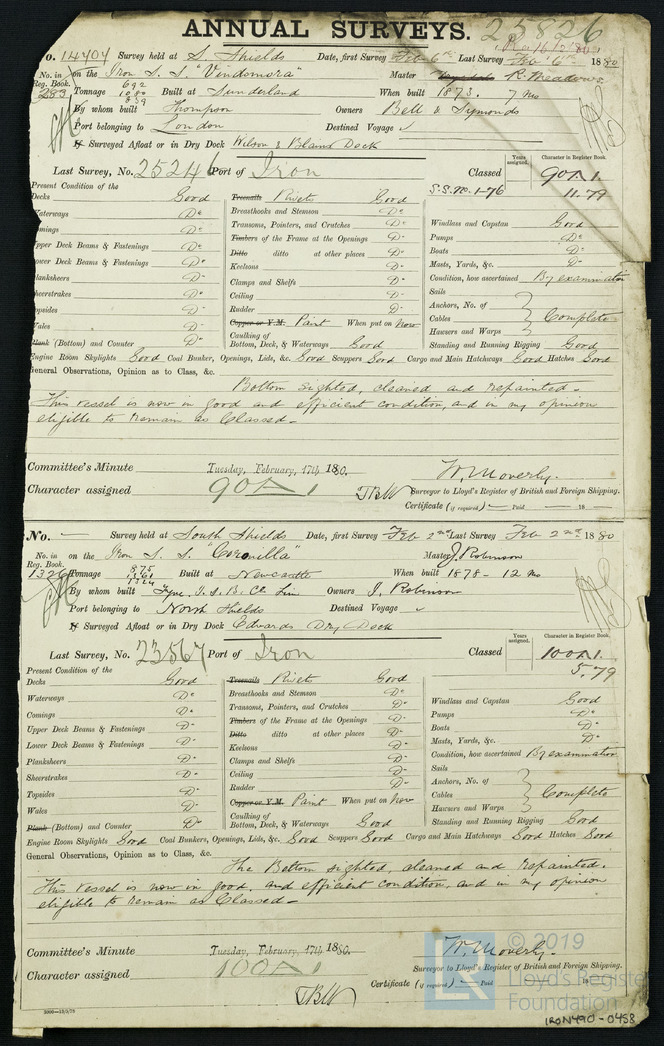 ANNUAL SURVEYS. 25826
Rec 16/2/80
No. 14404 Survey held at S. Shields Date, first Survey Feb 6th Last Survey Feb 6th 1880
No. in Reg. Book. 283 on the Iron S. S. "Vindomora" Master R. Meadows
Tonnage 692 1080 839 Built at Sunderland When built 1873. 7 Mo
By whom built Thompson Owners Bell & Symonds
Port belonging to London Destined Voyage ✓
If Surveyed Afloat or in Dry Dock Wilson & Blains Dock
Last Survey, No. 25246 Port of Iron Classed S.S. No. 1-76 Years assigned. Character in Register Book. 90A1. 11.79
Present Condition of the
Decks Good Treenails Rivets Good
Waterways Do Breasthooks and Stemson Do Windlass and Capstan Good
Comings Do Transoms, Pointers, and Crutches Do Pumps Do
Upper Deck Beams & Fastenings Do Timbers of the Frame at the Openings Do Boats Do
Lower Deck Beams & Fastenings Do Ditto ditto at other places Do Masts, Yards, &c. Do
Planksheers Do Keelsons Do Condition, how ascertained By examination
Sheerstrakes Do Clamps and Shelfs Do Sails
Topsides Do Ceiling Do Anchors, No. of
Wales Do Rudder Do Cables Complete
Plank (Bottom) and Counter Do Copper or Y.M. Paint When put on Now Hawsers and Warps
Caulking of Bottom, Deck, & Waterways Good Standing and Running Rigging Good
Engine Room Skylights Good Coal Bunker, Openings, Lids, &c. Good Scuppers Good Cargo and Main Hatchways Good Hatches Good
General Observations, Opinion as to Class, &c.
Bottom sighted, cleaned and repainted.
This vessel is now in good and efficient condition, and in my opinion
eligible to remain as Classed -
Committee's Minute Tuesday, February, 17th 1880. W. Moverly.
Character assigned 90A1 TBW Surveyor to Lloyd's Register of British and Foreign Shipping.
Certificate (if required) — Paid 18
No. — Survey held at South Shields Date, first Survey Feb 2nd Last Survey Feb 2nd 1880
No. in Reg. Book. 1326 on the Iron S. S. "Coronilla" Master J. Robinson
Tonnage 875 1361 1324 Built at Newcastle When built 1878 - 12 Mo
By whom built Tyne I. S. B. Co Lim Owners J. Robinson
Port belonging to North Shields Destined Voyage ✓
If Surveyed Afloat or in Dry Dock Edwards Dry Dock
Last Survey, No. 23567 Port of Iron Classed Years assigned. Character in Register Book. 100A1. 5.79
Present Condition of the
Decks Good Treenails Rivets Good
Waterways Do Breasthooks and Stemson Do Windlass and Capstan Good
Comings Do Transoms, Pointers, and Crutches Do Pumps Do
Upper Deck Beams & Fastenings Do Timbers of the Frame at the Openings Do Boats Do
Lower Deck Beams & Fastenings Do Ditto ditto at other places Do Masts, Yards, &c. Do
Planksheers Do Keelsons Do Condition, how ascertained By examination
Sheerstrakes Do Clamps and Shelfs Do Sails
Topsides Do Ceiling Do Anchors, No. of
Wales Do Rudder Do Cables Complete
Plank (Bottom) and Counter Do Copper or Y.M. Paint When put on Now Hawsers and Warps
Caulking of Bottom, Deck, & Waterways Good Standing and Running Rigging Good
Engine Room Skylights Good Coal Bunkers, Openings, Lids, &c. Good Scuppers Good Cargo and Main Hatchways Good Hatches Good
General Observations, Opinion as to Class, &c.
The Bottom sighted, cleaned and repainted.
This vessel is now in good, and efficient condition, and in my opinion
eligible to remain as Classed -
Committee's Minute Tuesday, February, 17th 1880. W. Moverly.
Character assigned 100A1 TBW Surveyor to Lloyd's Register of British and Foreign Shipping.
Certificate (if required) — Paid 18
© 2019
Lloyd's Register
Foundation
IRON490-0458